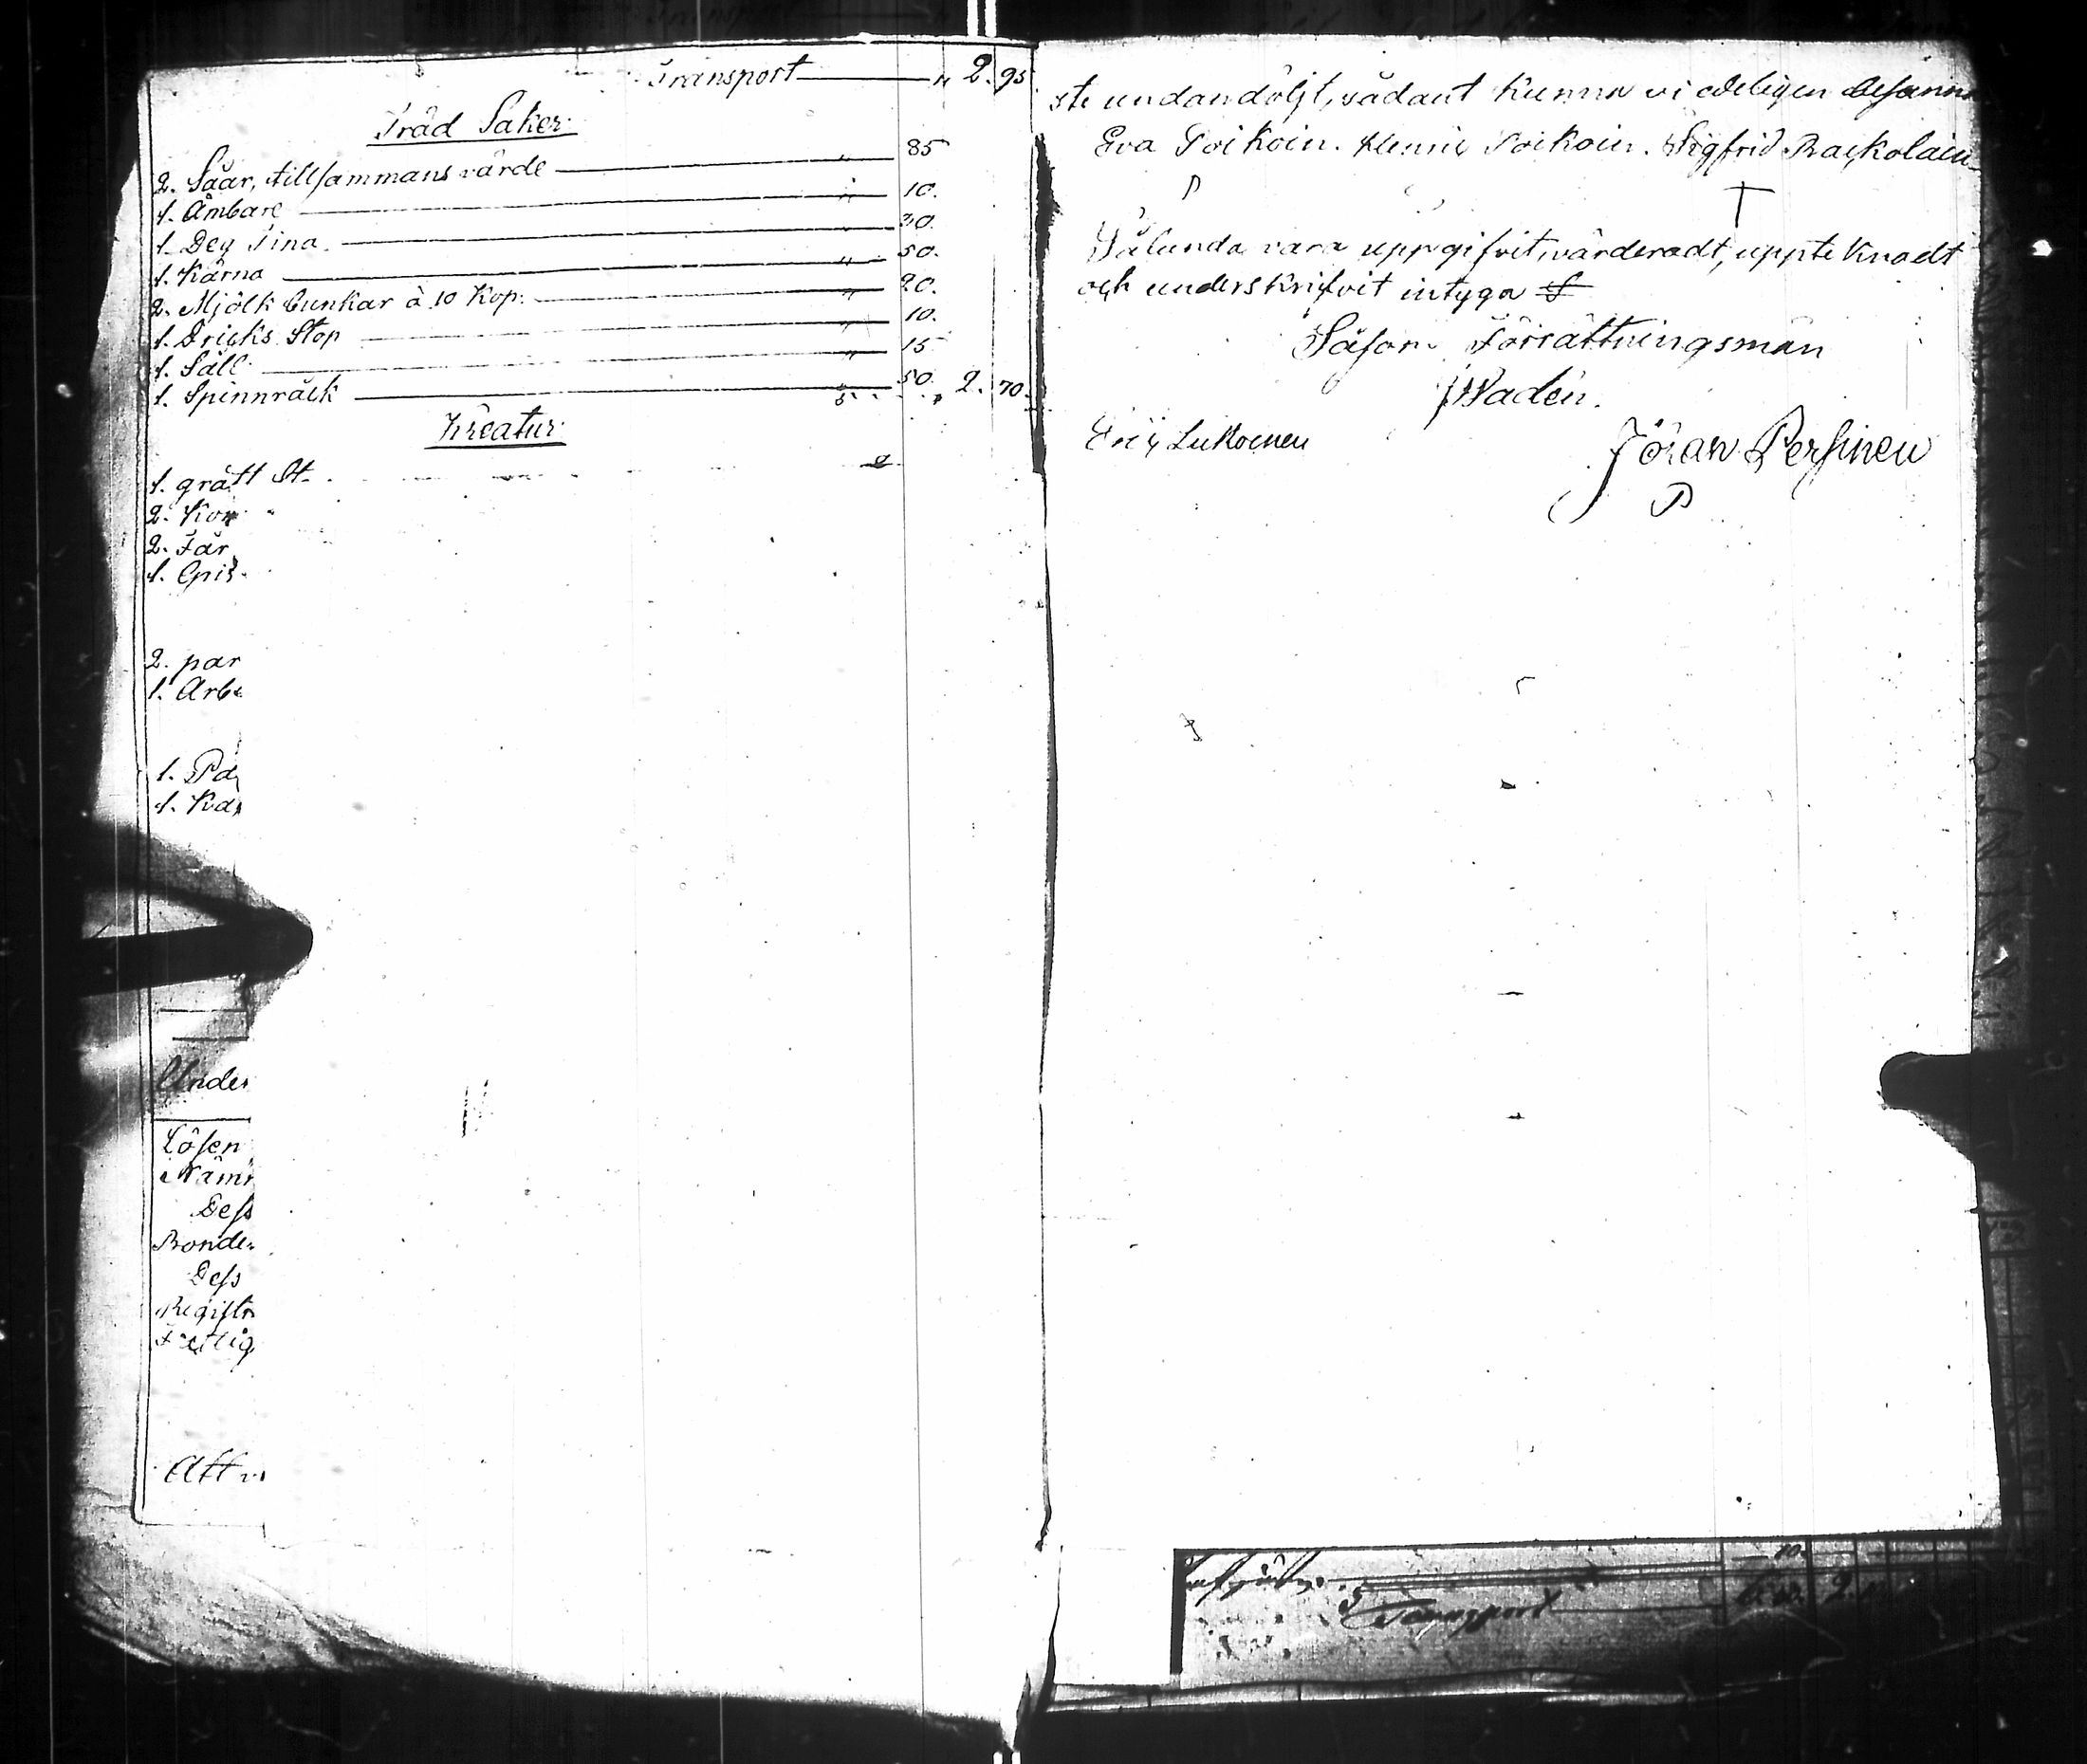 Transport — " 2. 95
Träd Saker.
2. Såar, tillsammans värde — " 85
1. Ämbare — " 10.
1. Deg Tina. — 30.
1. Kärna — " 50.
2. Mjölk bunkar à 10 Kop. — " 20.
1. Dricks Stop — " 10.
1. Såll — " 15
1. Spinnråck — 50. " 2. 70.
Kreatur.
1. grått St
2. Kor
2. Får
1. Gris
2. par
1. Arbe
1. Pa
1. Ka
Under
Lösen
Näm
Dess
Bonde
Dess
Registr
Fattig
Att
ste undandöljt, sådant kunna vi edeligen besanna
Eva Toikoin. Henric Toikoin. Sigfrid Raikolain
Sålunda vara uppgifvit, värderadt, upptecknadt
och underskrifvit intyga
Såsom Förrättningsmän
Wadén.
Eric Lukkoinen
Jöran Persinen
P
Transport